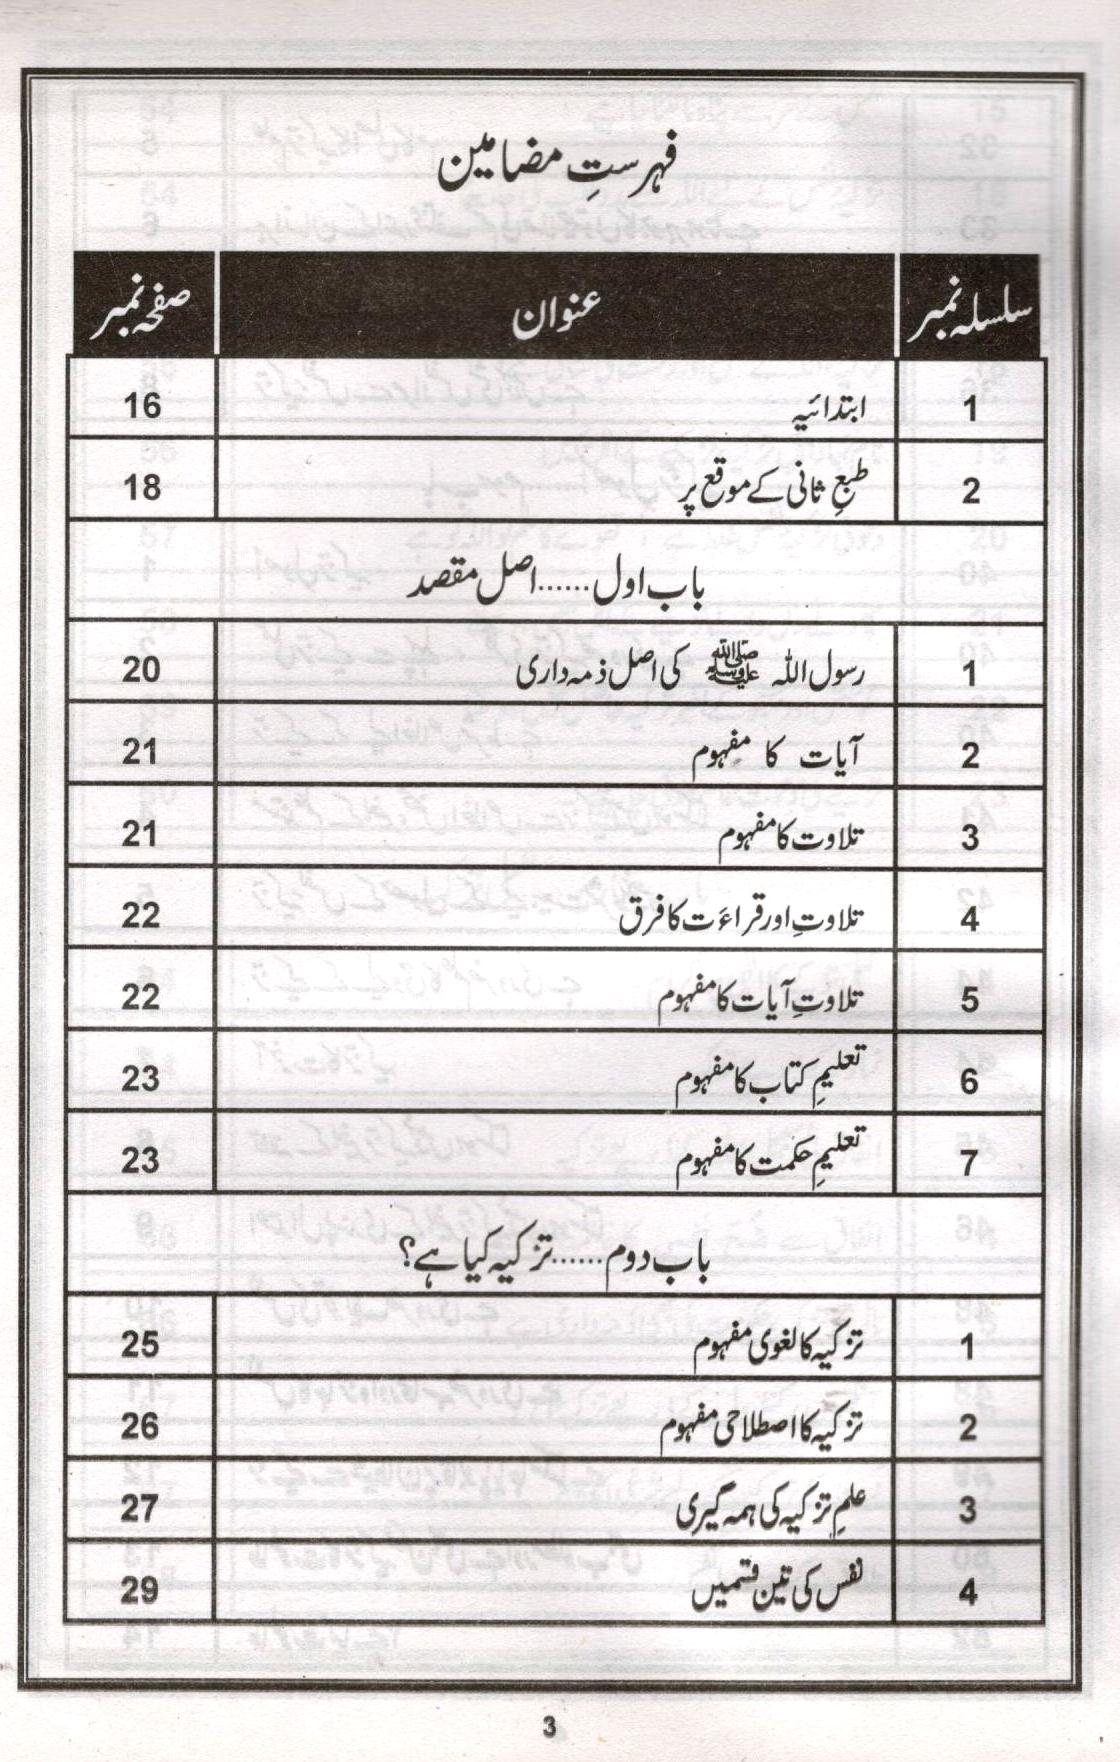 فہرستِ مضامین
سلسلہ نمبر عنوان صفحہ نمبر
1 ابتدائیہ 16
2 طبعِ ثانی کے موقع پر 18
باب اول......اصل مقصد
1 رسول اللہ ﷺ کی اصل ذمہ داری 20
2 آیات کا مفہوم 21
3 تلاوت کا مفہوم 21
4 تلاوتِ اور قراءَت کا فرق 22
5 تلاوتِ آیات کا مفہوم 22
6 تعلیمِ کتاب کا مفہوم 23
7 تعلیمِ حکمت کا مفہوم 23
باب دوم......تزکیہ کیا ہے؟
1 تزکیہ کا لغوی مفہوم 25
2 تزکیہ کا اصطلاحی مفہوم 26
3 علمِ تزکیہ کی ہمہ گیری 27
4 نفس کی تین قسمیں 29
3